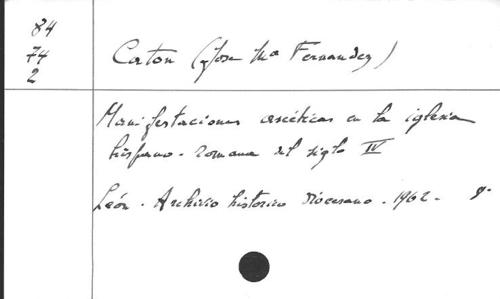 84
74
2
Caton (Jose Mª Fernandez)
Manifestaciones ascéticas en la iglesia
hispano-romana del siglo IV
León. Archivo historico Diocesano. 1962.